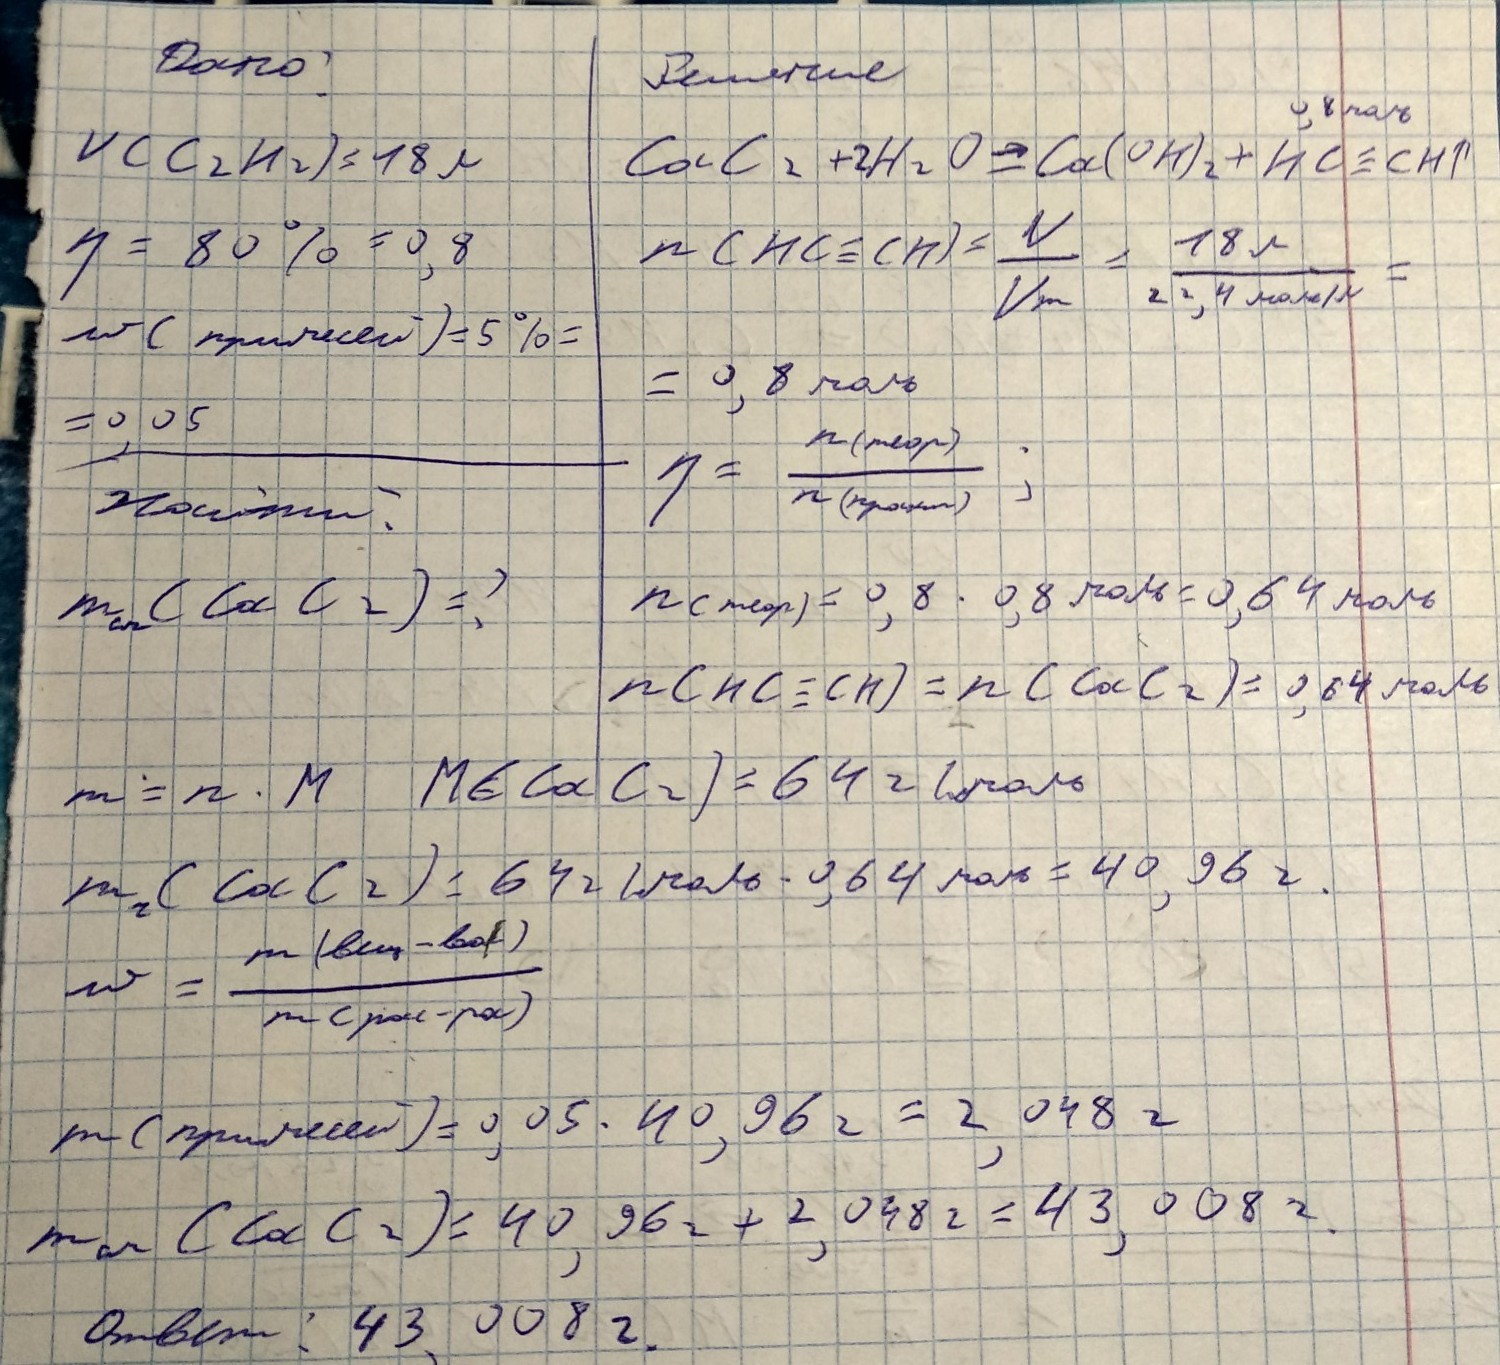 Дано:
V(C₂H₂)=18л
η = 80% = 0,8
w(примесей)=5%=
=0,05
Найти:
mсм(CaC₂)=?
Решение
0,8 моль
CaC₂ + 2H₂O = Ca(OH)₂ + HC≡CH↑
n(HC≡CH) = V/Vm = 18л/22,4 моль/л =
= 0,8 моль
η = n(теор)/n(практ) ;
n(теор) = 0,8 · 0,8 моль = 0,64 моль
n(HC≡CH) = n(CaC₂) = 0,64 моль
m = n · M M(CaC₂) = 64 г/моль
mч(CaC₂) = 64 г/моль · 0,64 моль = 40,96 г.
w = m(вещ-ва)/m(рас-ра)
m(примесей) = 0,05 · 40,96 г = 2,048 г
mсм(CaC₂) = 40,96 г + 2,048 г = 43,008 г.
Ответ: 43,008 г.